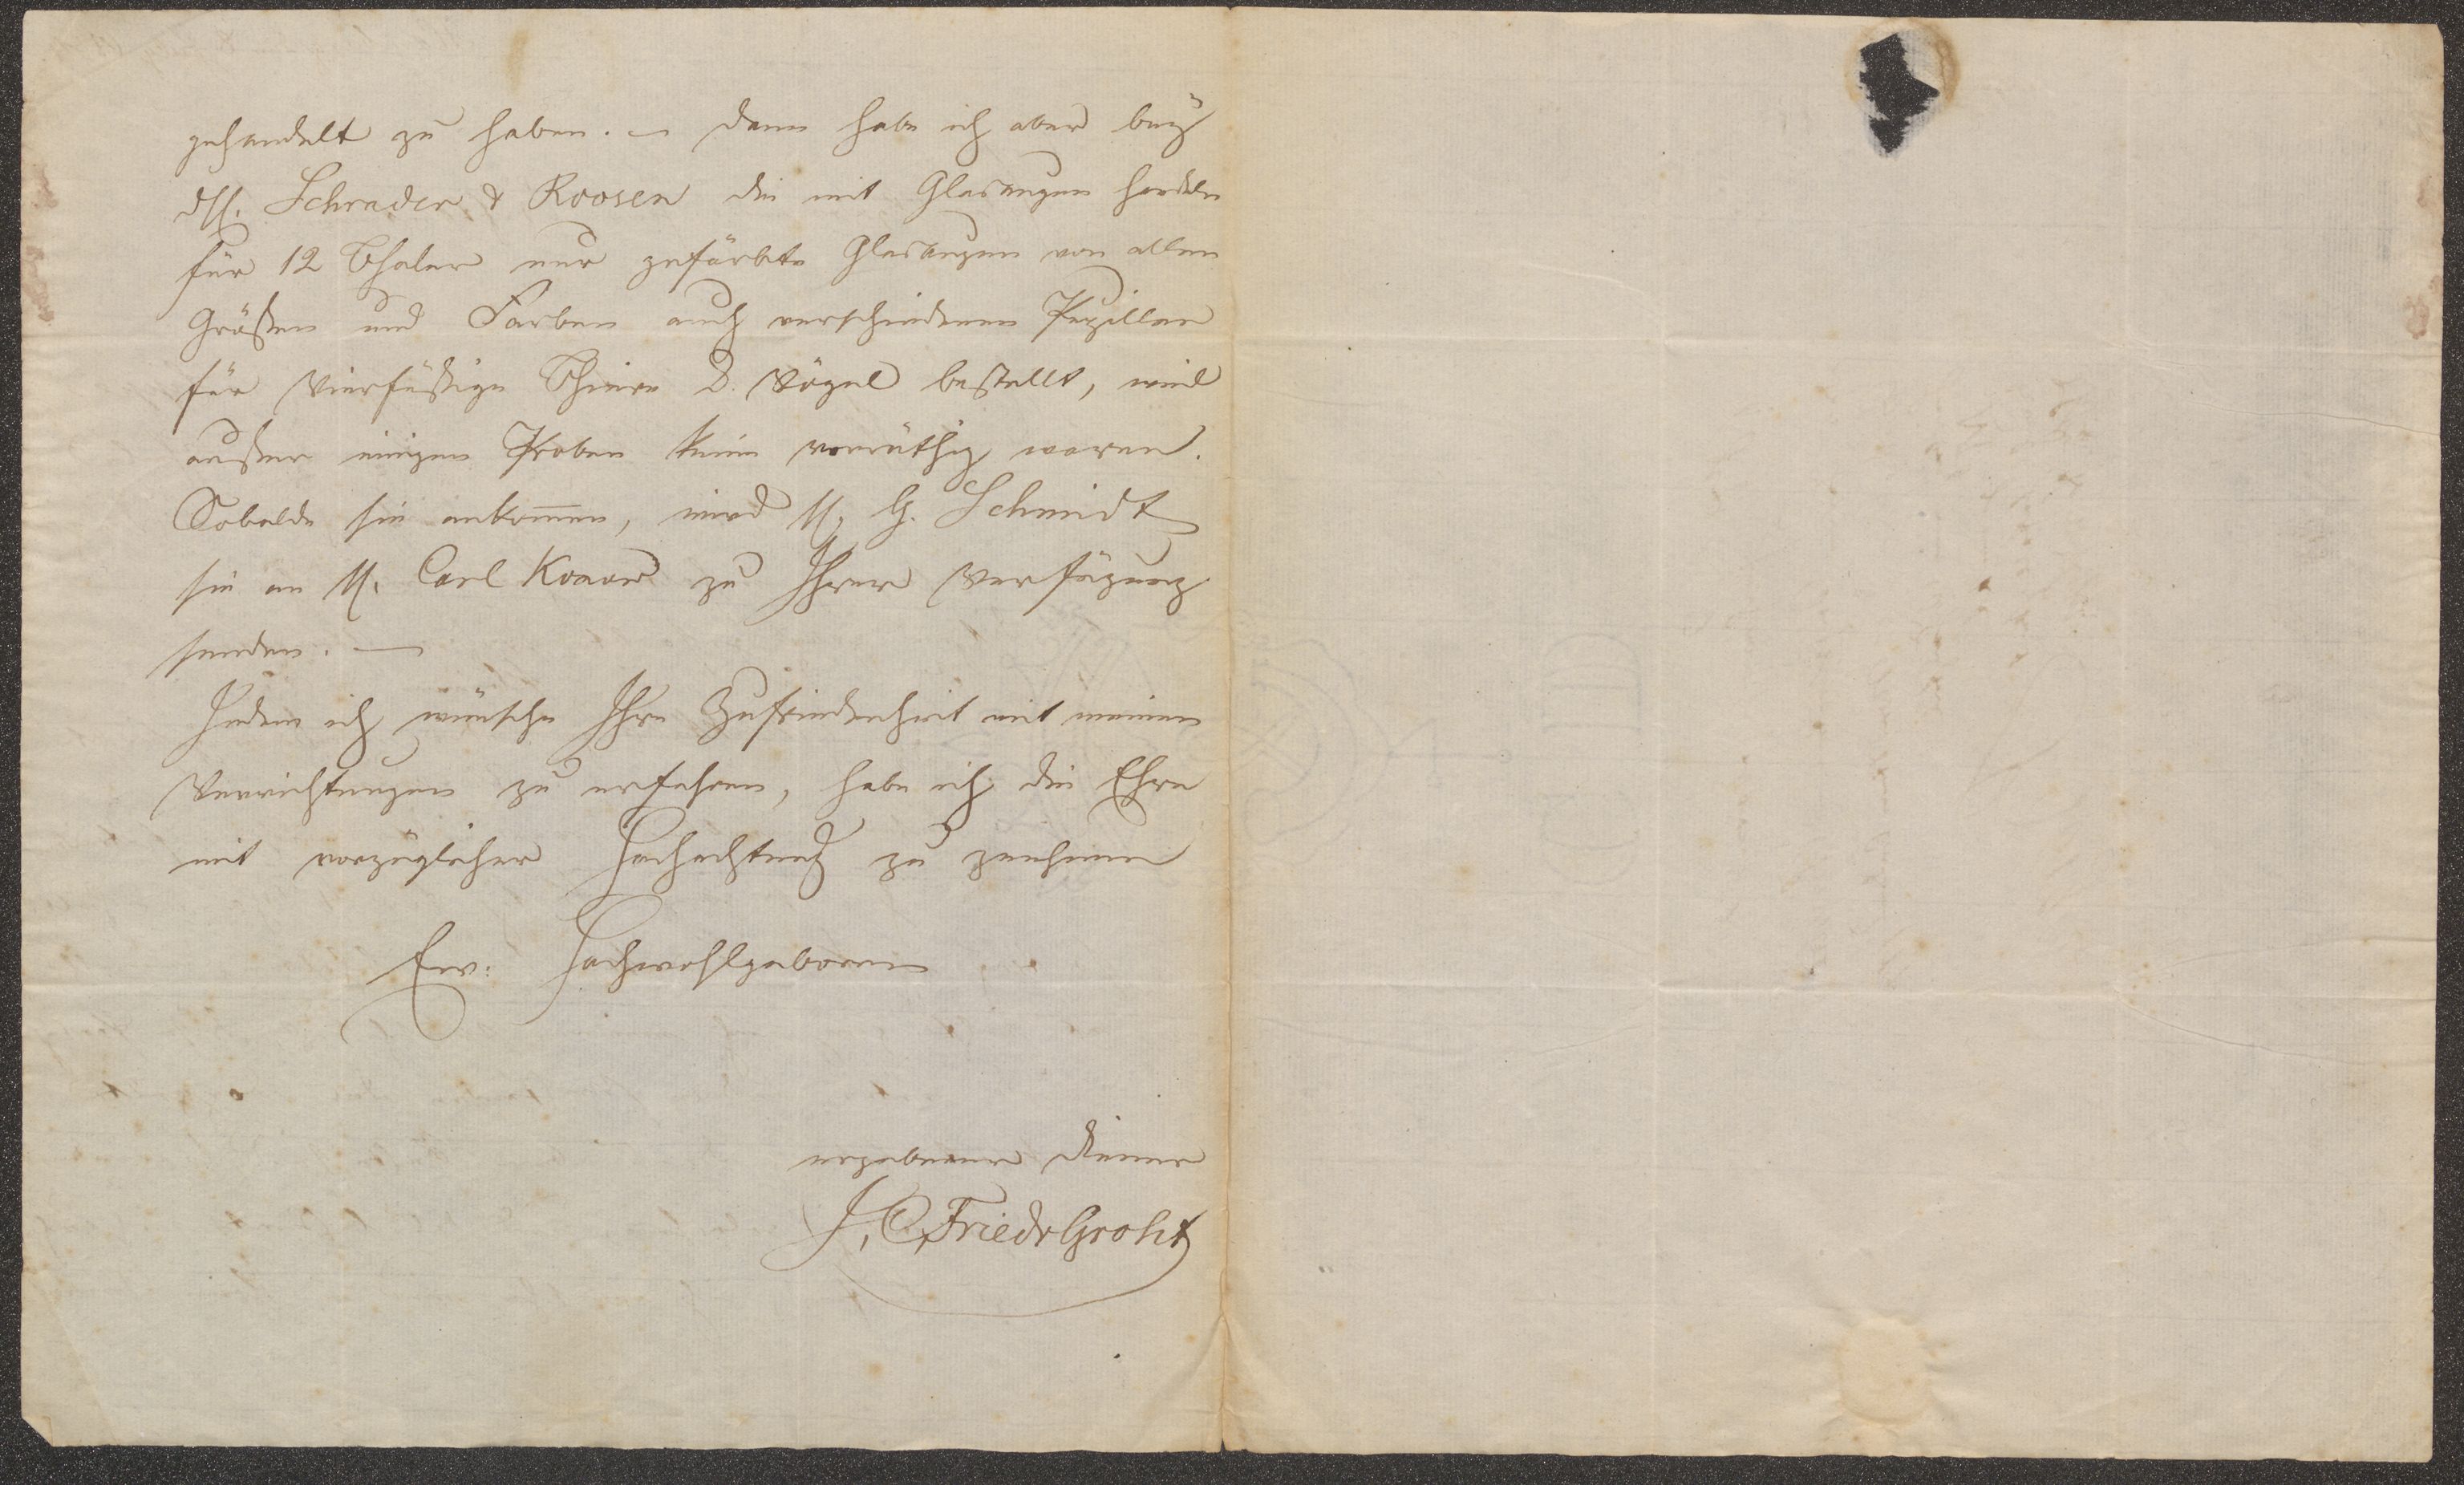 gehandelt zu haben. — Dann habe ich aber bey
dH. Schrader & Roosen die mit Glasaugen handeln
für 12 Thaler nur gefärbte Glasaugen von allen
Größen und Farben auch verschiedenen Pupillen
für Vierfüßige Thiere & Vögel bestellt, weil
außer einigen Proben keine vorräthig waren.
Sobalde sie ankom̅en, wird H. G. Schmidt
sie an H. Carl zu Ihrer Verfügung
senden. —
Indem ich wünsche Ihre Zufriedenheit mit meinen
Verrichtungen zu erfahren, habe ich die Ehre
mit vorzüglicher Hochachtung zu zeichnen
Ew: Hochwohlgeboren
ergebener Diener
J. C. Friedr Groht